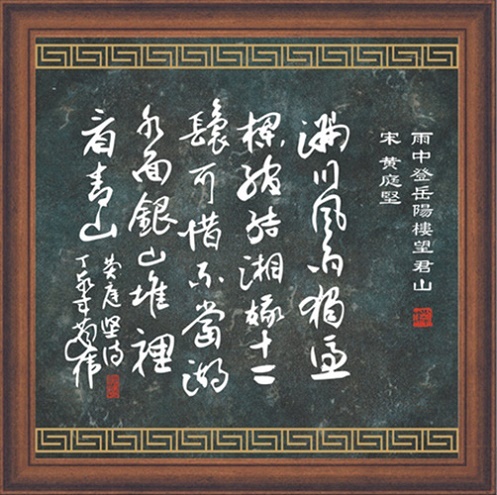 雨中登岳陽樓望君山
宋 黄庭堅
滿川風雨獨憑
欄綰結湘娥十二
鬟可惜不當湖
水面銀山堆裡
看青山
黄庭堅詩
丁亥年